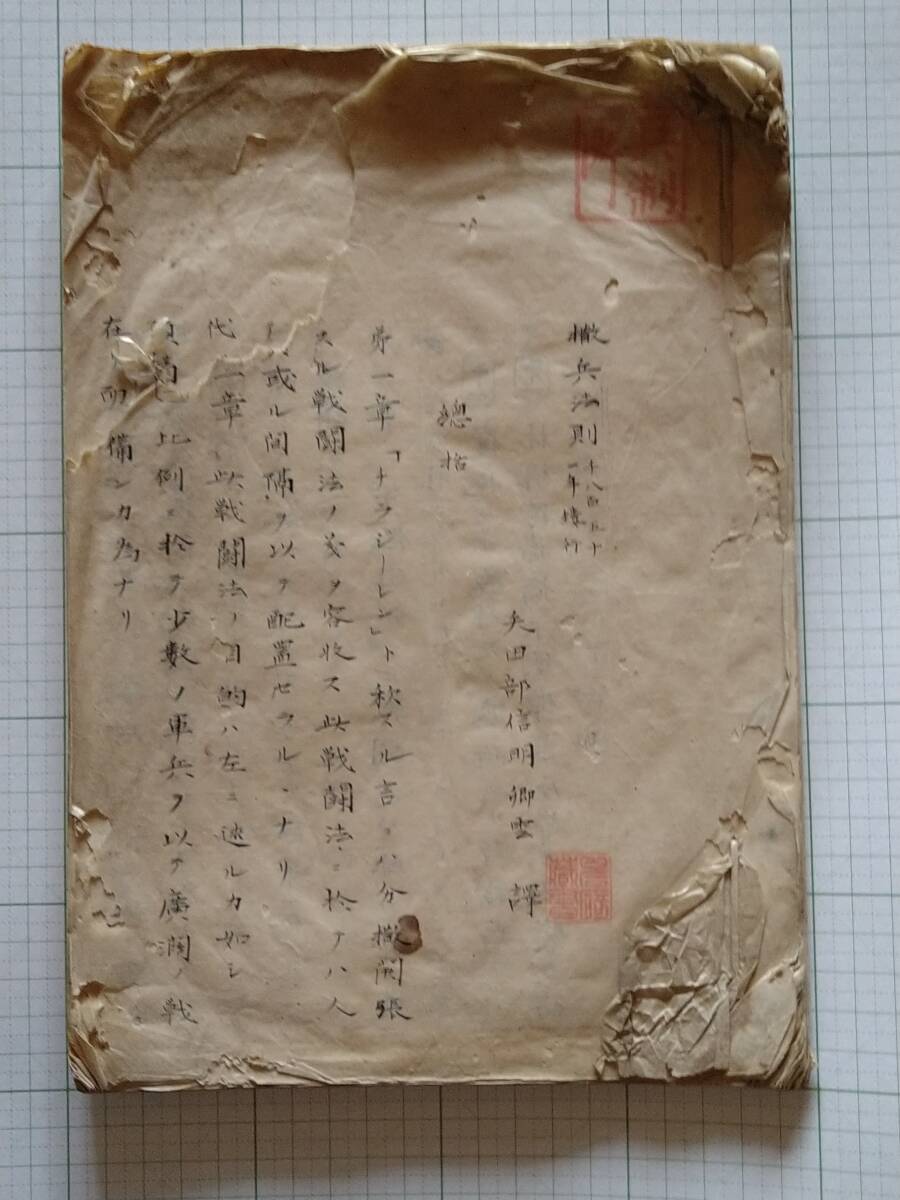 撒兵法則 千八百五十一年鐫行
矢田部信明卿雲 譯
總括
第一章「チラジーレン」ト秋スル言ハ分撒開張
スル戦闘法ノ義ヲ容收ス此戦闘法ニ於テハ人
或ル間隔ヲ以テ配置セラルヽナリ
一章 此戦闘法ノ目的ハ左ニ述ルカ如シ
比例ニ於テ少數ノ軍兵ヲ以テ廣濶ノ戦
備ンカ為ナリ